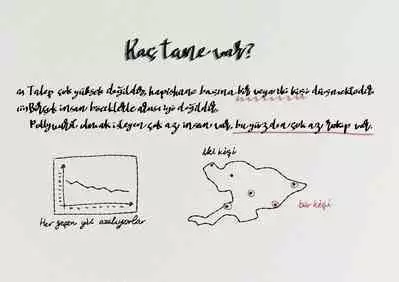 Kaç tane var?
Talep çok yüksek değildir, hapishane başına bir veya iki kişi düşmektedir.
Birçok insan böceklerle arası iyi değildir.
olmak isteyen çok az insan var, bu yüzden çok az rakip var.
iki kişi
Her geçen yıl azalıyorlar
bir kişi